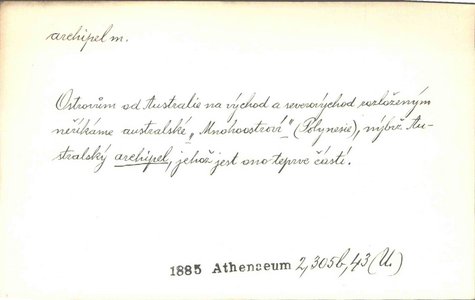 archipel m.
Ostrovům od Australie na východ a severovýchod rozloženým
neříkáme australské „Mnohoostroví" (Polynesie), nýbrž Au-
stralský archipel, jehož jest ono teprve částí.
1885 Athenaeum 2,305b,43 (U.)